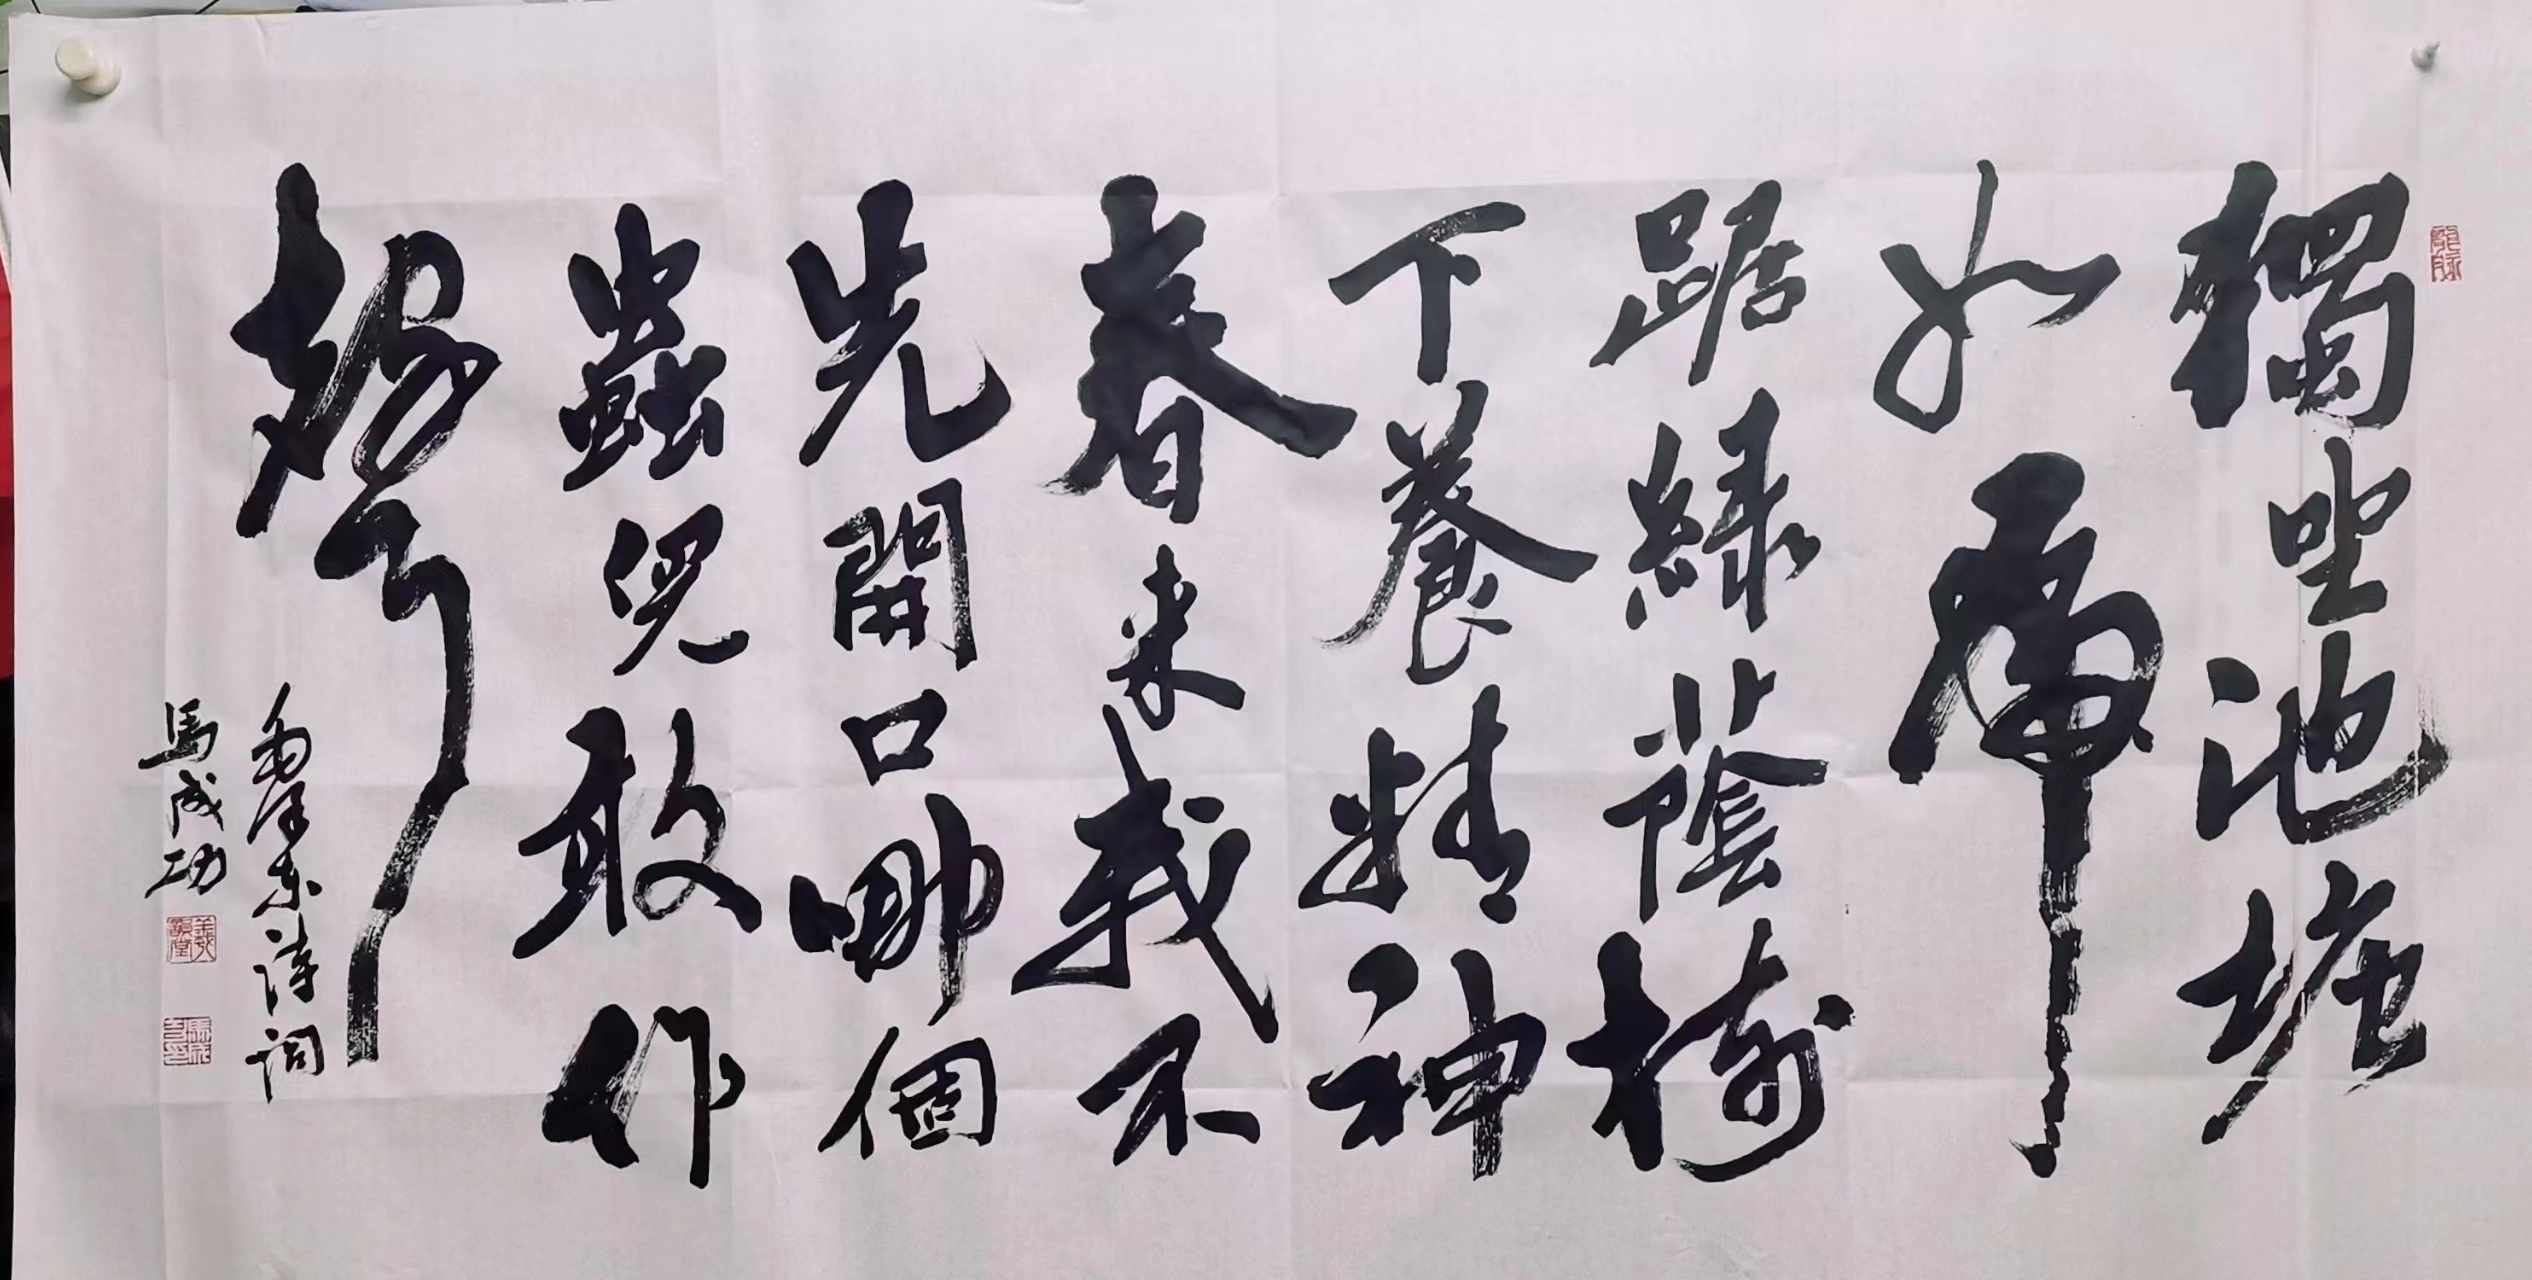 獨坐池塘
如虎
踞綠蔭樹
下養精神
春來我不
先開口哪個
蟲兒敢作
聲
毛澤东诗词
馬成功